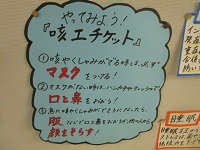 やってみよう!
『咳エチケット』
①咳やくしゃみがでる時は、必ず
マスク
をつける!
②マスクがない時は、ハンカチやティッシュで
口と鼻をおおう!
③急に咳やくしゃみがでそうになったら、
服などで口と鼻をおおうか、他の人から
顔をそらす!